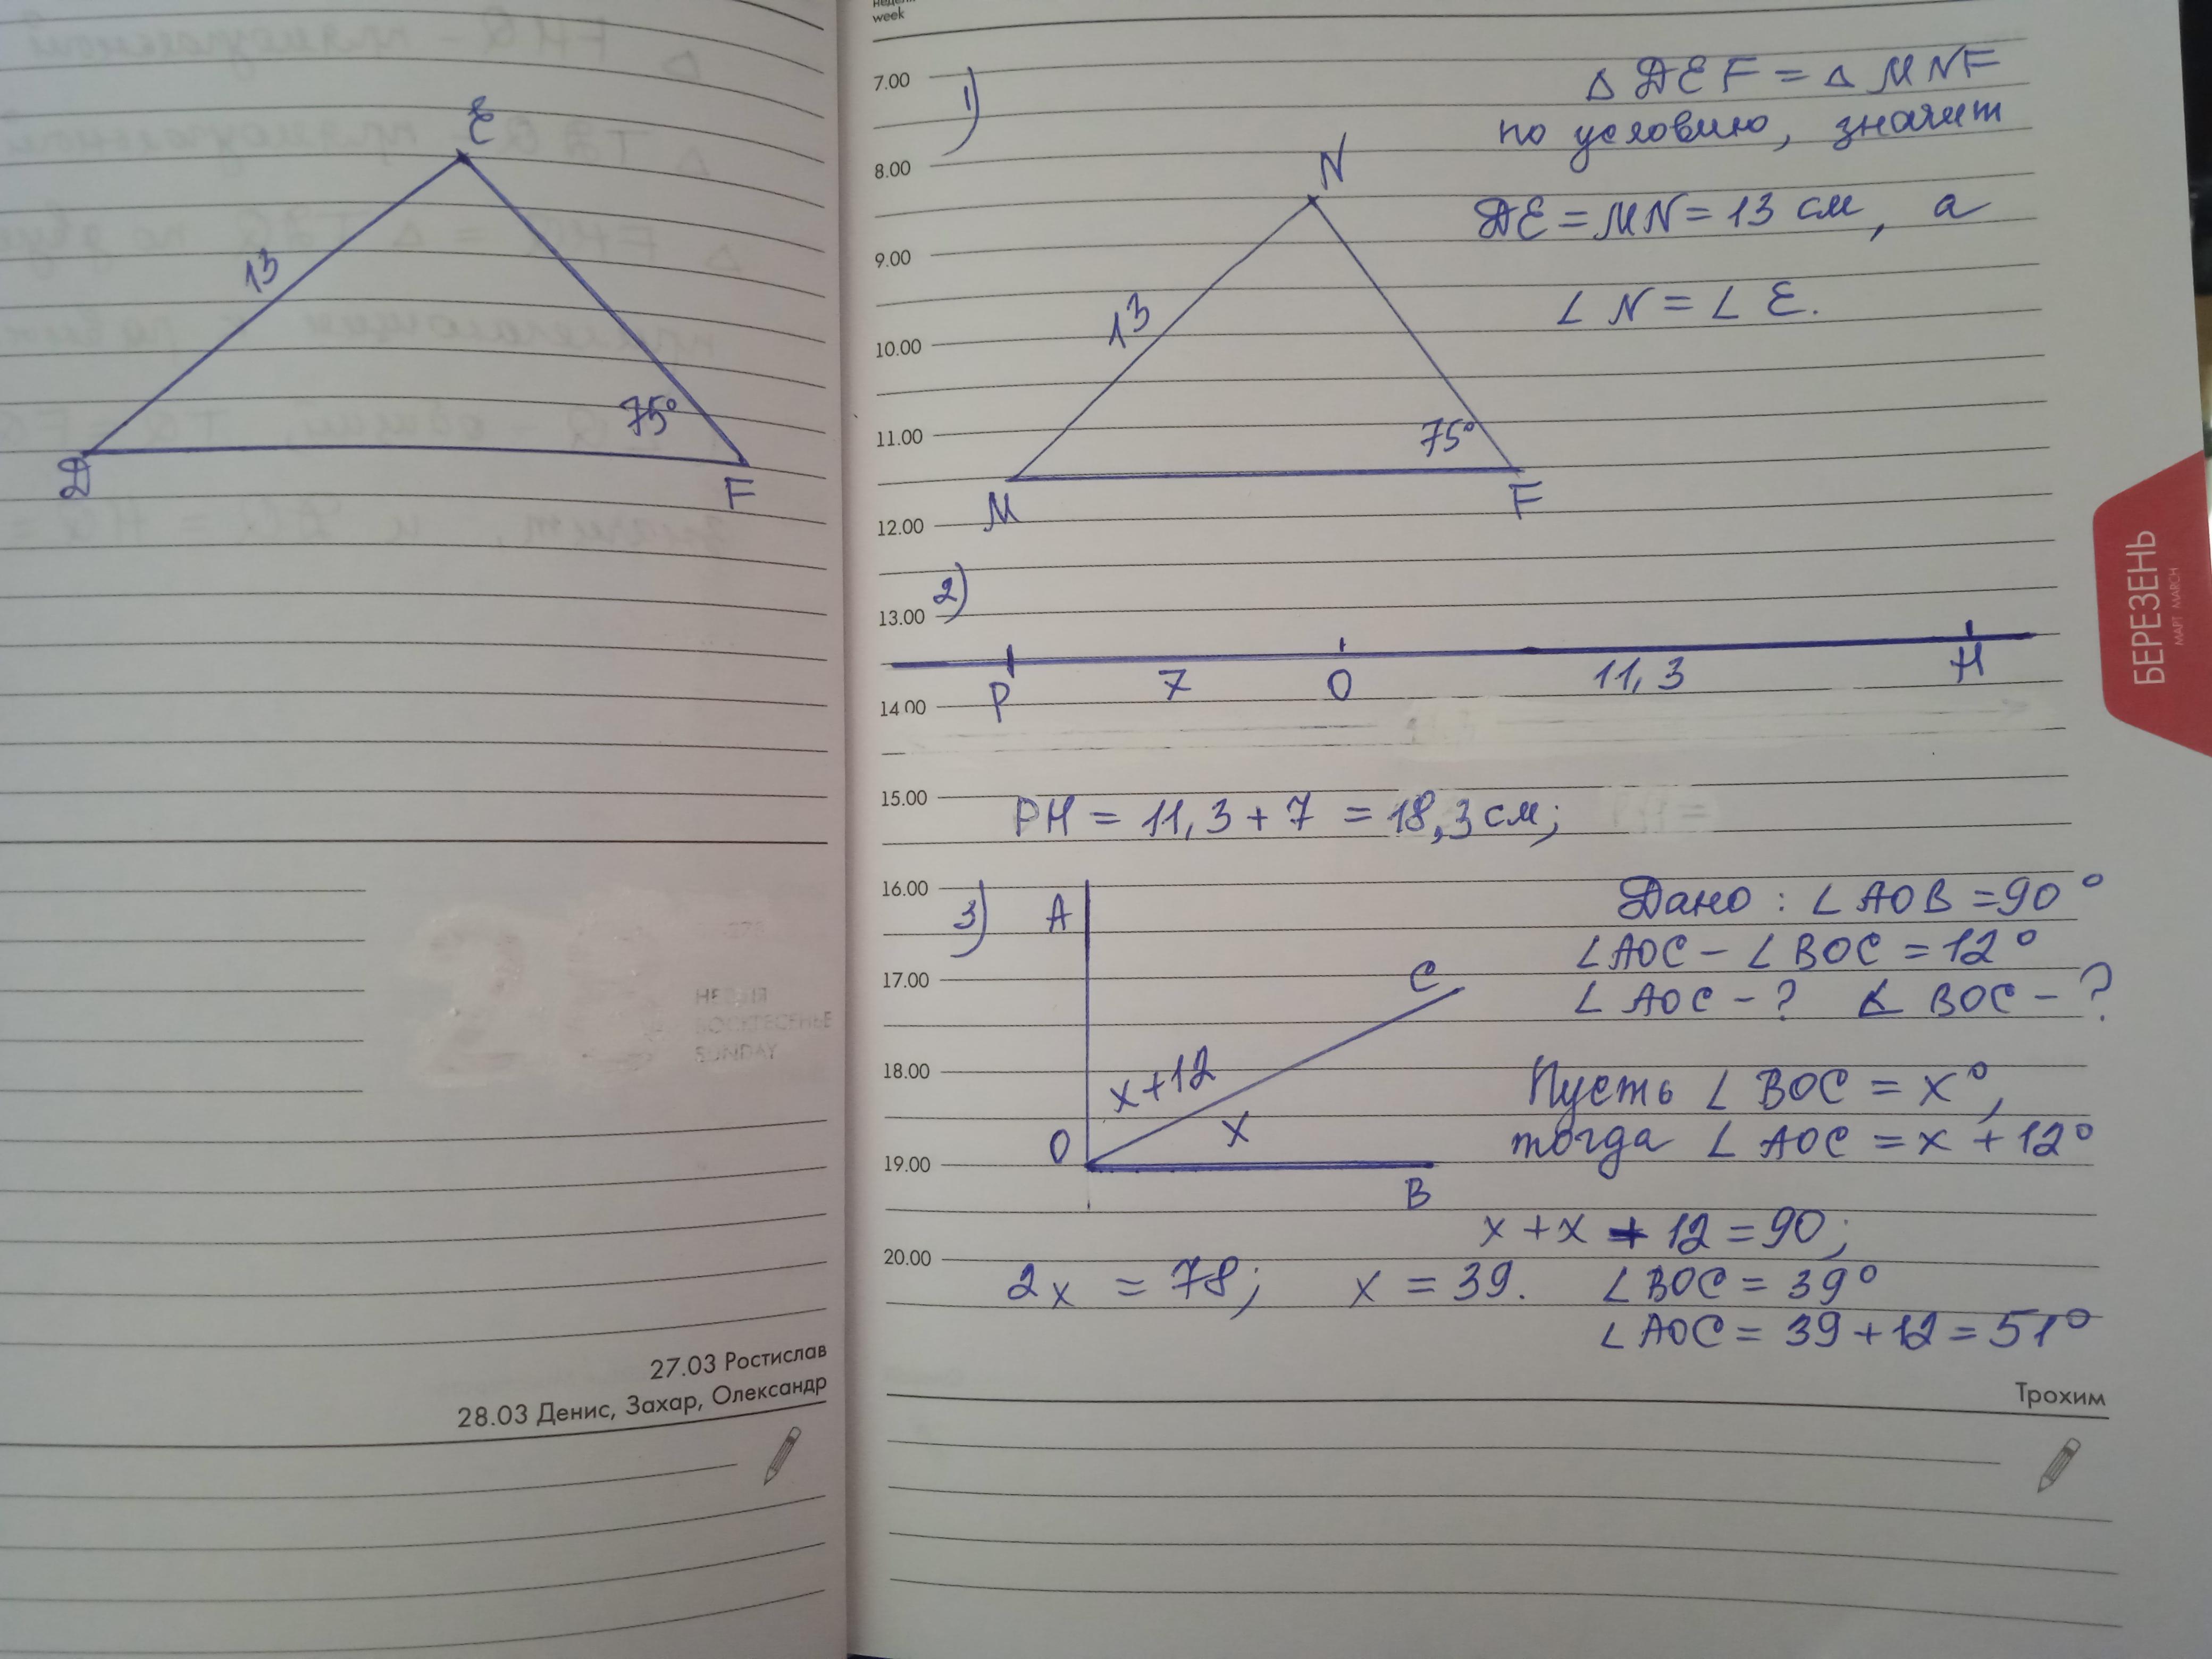 E
13
75°
D
F
27.03 Ростислав
28.03 Денис, Захар, Олександр
week
7.00
1)
△ DEF = △ MNF
по условию, значит
8.00
N
DE = MN = 13 см, а
9.00
∠ N = ∠ E.
13
10.00
75°
11.00
M
F
12.00
2)
13.00
P
7
O
11,3
H
14.00
15.00
PH = 11,3 + 7 = 18,3 см;
16.00
3)
A
Дано : ∠ AOB = 90°
∠ AOC – ∠ BOC = 12°
17.00
C
∠ AOC – ? ∠ BOC – ?
18.00
x+12
Пусть ∠ BOC = x°,
x
тогда ∠ AOC = x + 12°
O
19.00
B
x + x + 12 = 90;
20.00
2x = 78; x = 39. ∠ BOC = 39°
∠ AOC = 39 + 12 = 51°
Трохим
БЕРЕЗЕНЬ
МАРТ MARCH